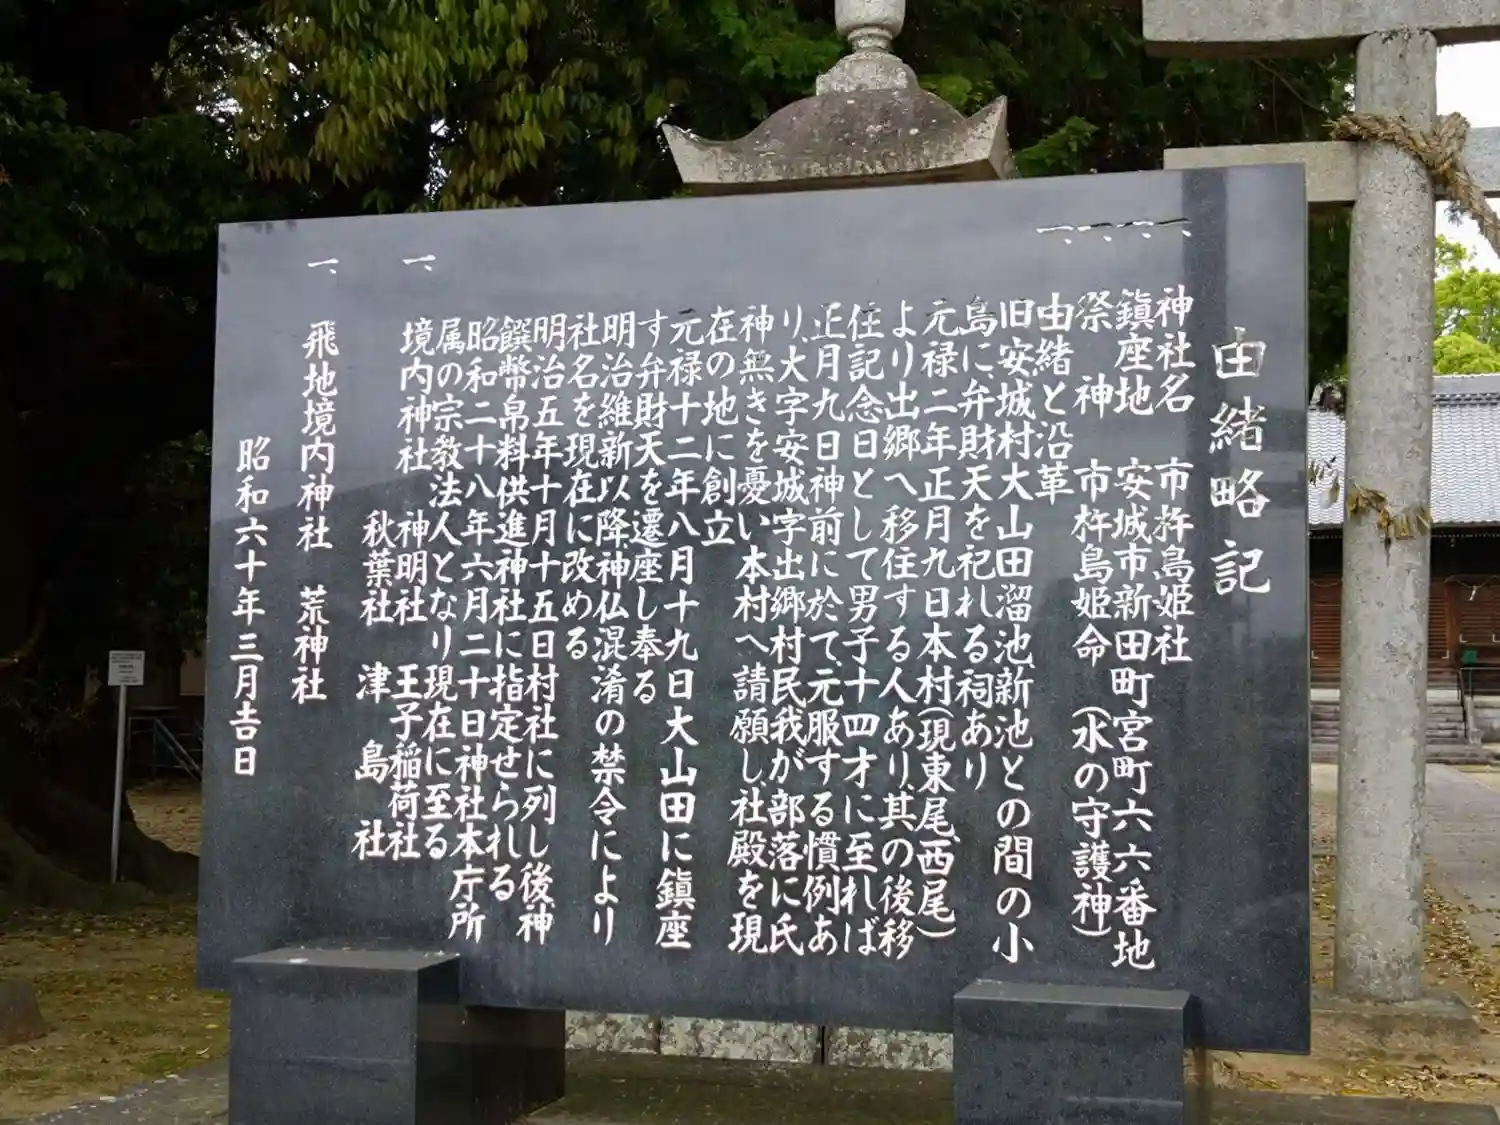 由緒略記
一、神社名　市杵島姫社
一、鎮座地　安城市新田町宮町六六番地
一、祭神　市杵島姫命（水の守護神）
一、由緒と沿革
旧安城村大山田溜池、新池との間の小
島に、弁財天を祀れる祠あり
元禄二年正月九日本村（現東尾、西尾）
より出郷へ移住する人あり、其の後移
住記念日として男子十四才に至れば
正月九日神前に於て、元服する慣例あ
り、大字安城字出郷村民我が部落に氏
神無きを憂い本村へ請願し、社殿を現
在の地に創立
元禄十二年八月十九日大山田に鎮座
す弁財天を遷座し奉る
明治維新以降神仏混淆の禁令により
社名を現在に改める
明治五年十月十五日村社に列し後、神
饌幣帛料供進神社に指定せられる
昭和二十八年六月二十日神社本庁所
属の宗教法人となり現在に至る
一、境内神社　神明社　王子稲荷社
秋葉社　津島社
一、飛地境内神社　荒神社
昭和六十年三月吉日